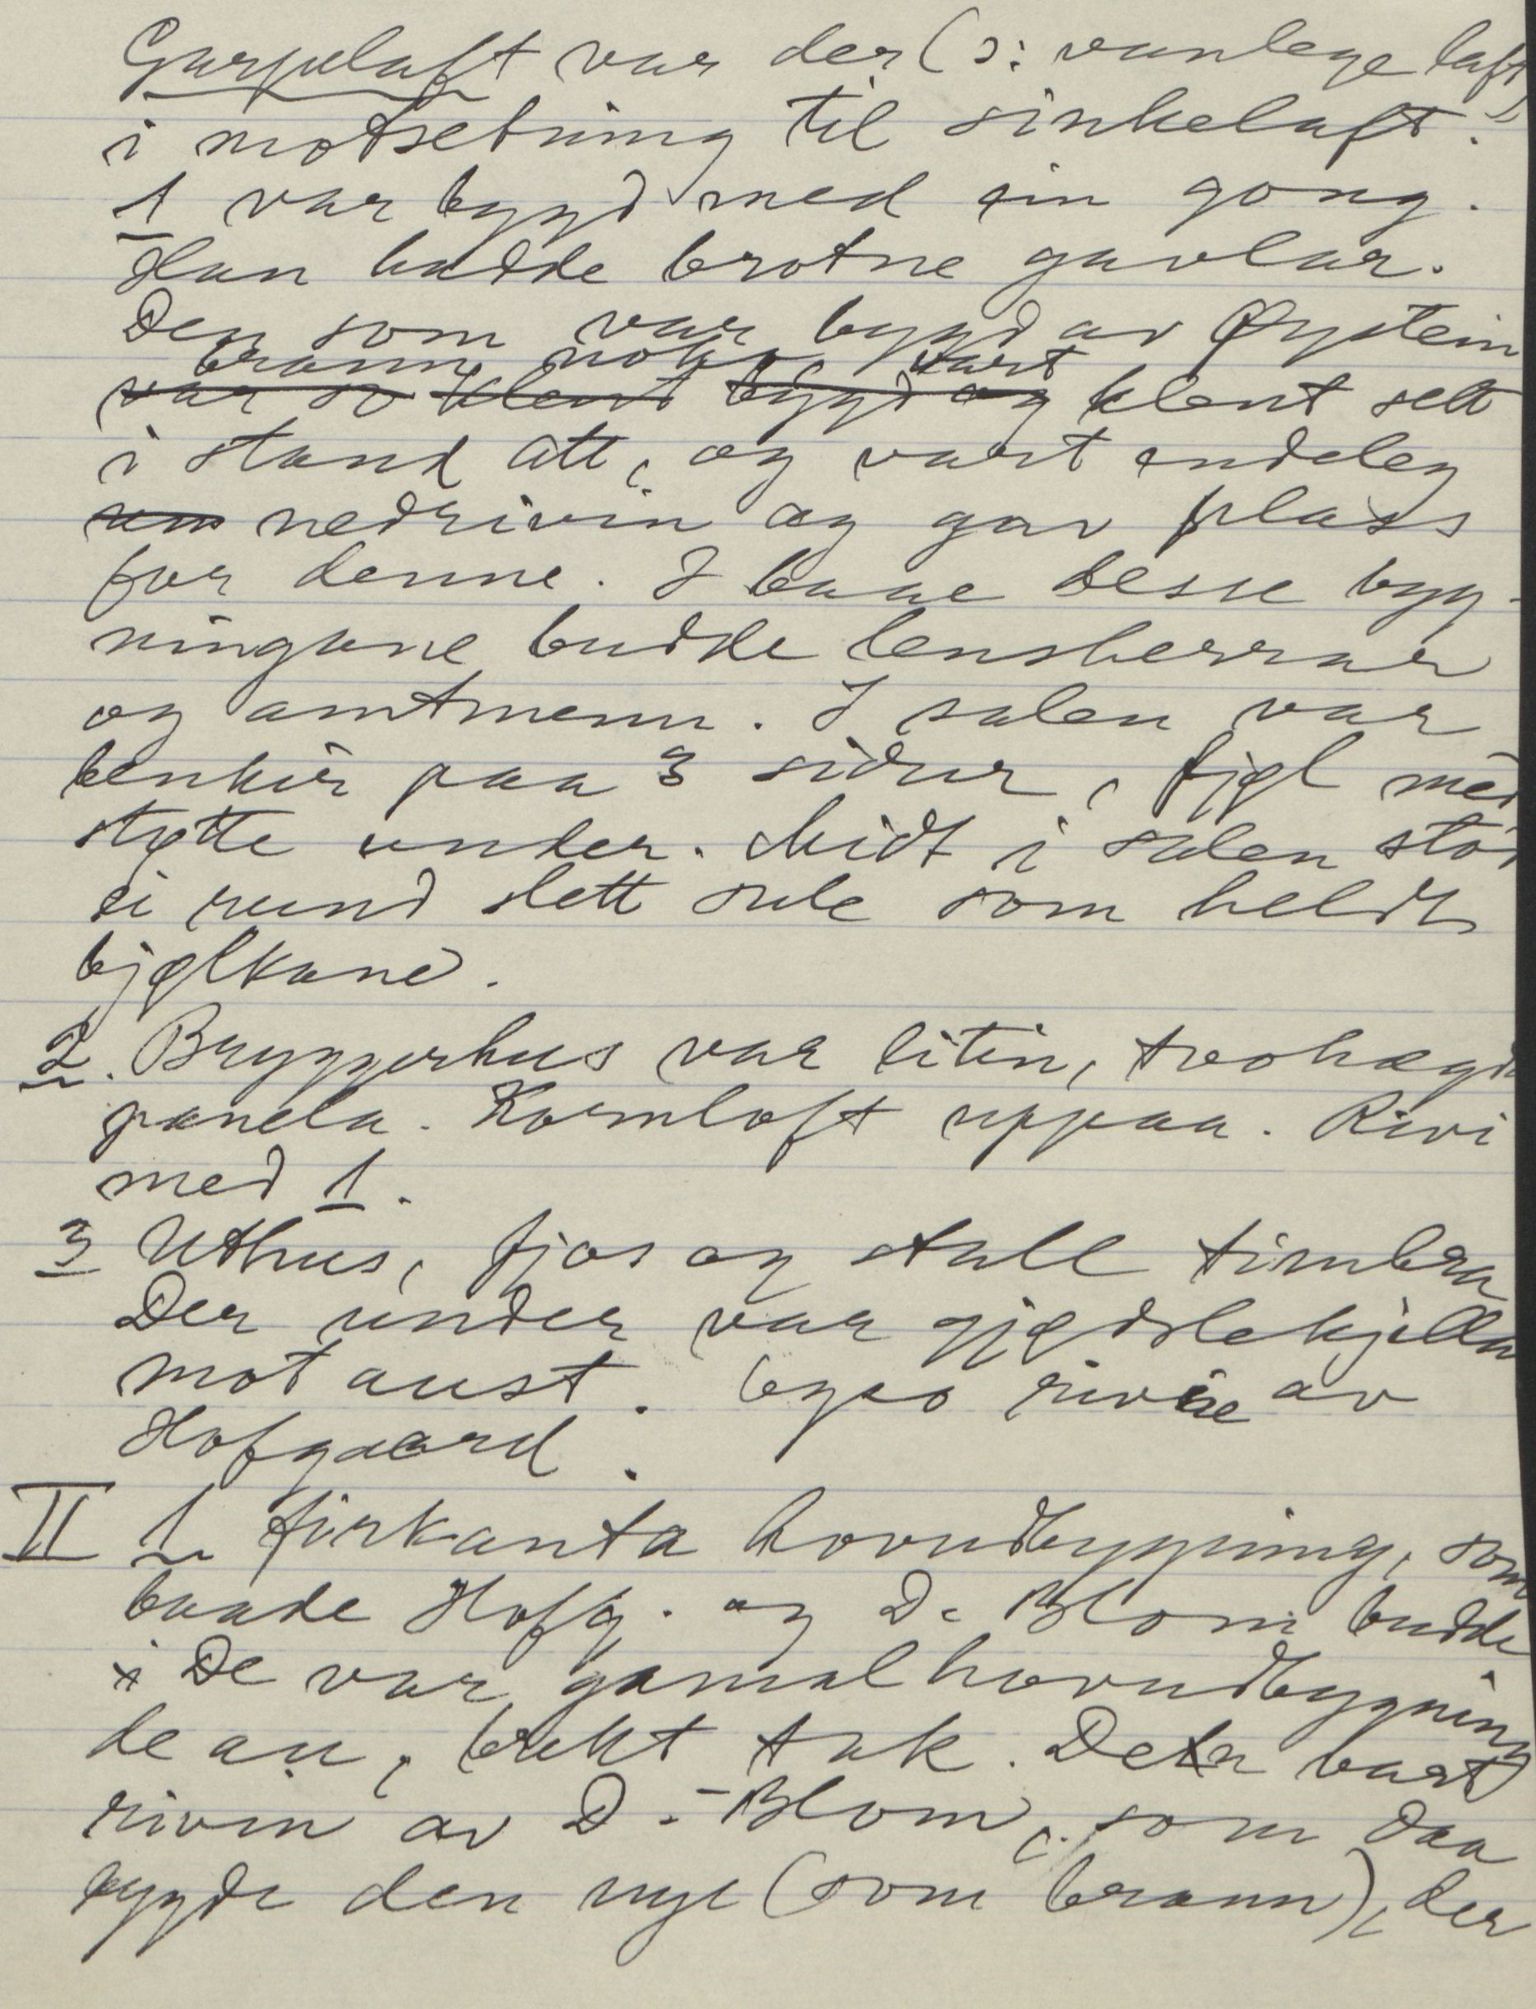 Garpelaft var der (ɔ: vanlege laft)
i motsetning til sinkelaft.
1 var bygd med ein gong.
Han hadde brotne gavlar.
Den som var bygd av Øystein
brann noko, vart
var so klent bygd og klent sett
i stand att, og vart endeleg
nedrivin og gav plass
for denne. I baae desse byg-
ningane budde lensherrar
og amtmenn. I salen var
benkir paa 3 sidur, fjøl med
støtte under. Midt i salen stod
ei rund slett sule som heldt
bjølkane.
2. Bryggerhus var litin, tvohøgda
panela. Kornloft uppaa. Rivi
med 1.
3 Uthus, fjos og stall timbra
Der under var gjødslekjellar
mot aust. rivne av
Hofgaard.
II 1 firkanta hovudbygning, som
baade Hofg. og D. Blom budde
i De var gamal hovudbygning
de au, brekt tak. Den vart
rivin av D. Blom, som daa
bygde den nye (som brann), der